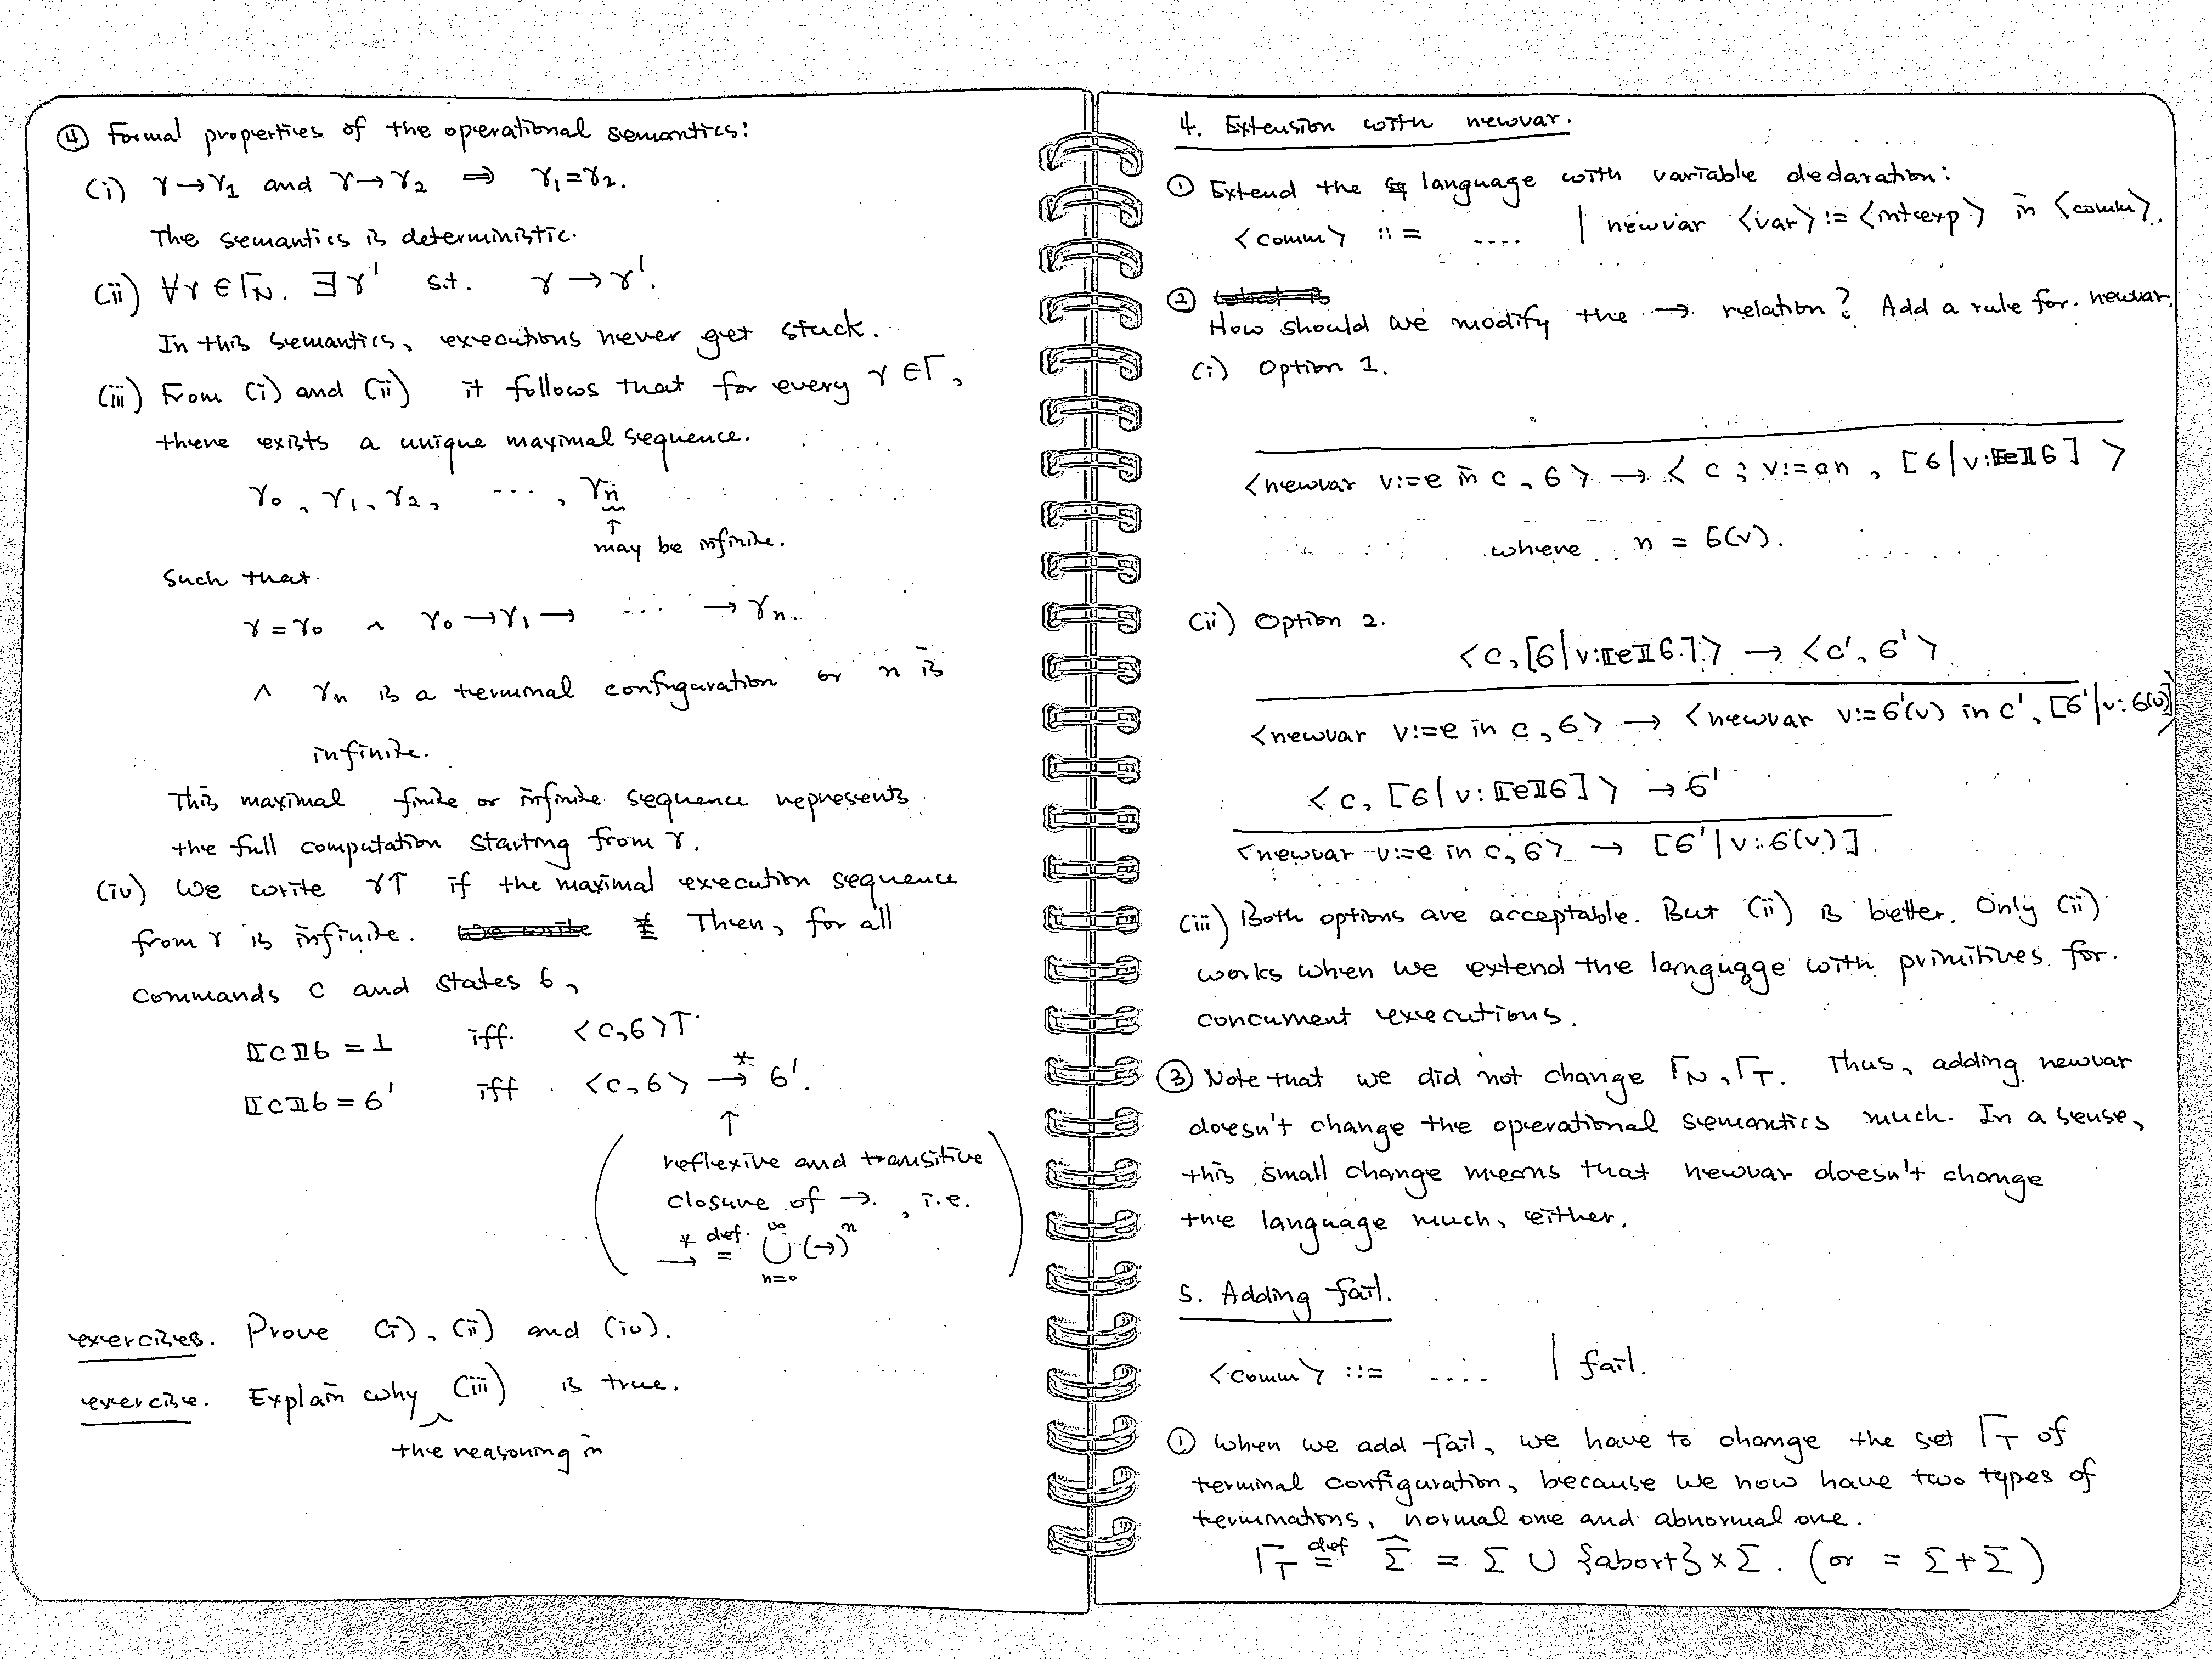 ④ Formal properties of the operational semantics:
(i) γ→γ1 and γ→γ2 ⇒ γ1=γ2.
The semantics is deterministic.
(ii) ∀γ∈ΓN. ∃γ' s.t. γ→γ'.
In this semantics, executions never get stuck.
(iii) From (i) and (ii) it follows that for every γ∈Γ,
there exists a unique maximal sequence.
γ0, γ1, γ2, ..., γn
↑
may be infinite.
Such that
γ=γ0 ∧ γ0→γ1→ ... →γn.
∧ γn is a terminal configuration or n is
infinite.
This maximal finite or infinite sequence represents
the full computation starting from γ.
(iv) We write γ↑ if the maximal execution sequence
from γ is infinite. Then, for all
commands c and states σ,
⟦c⟧σ = ⊥ iff. <c,σ>↑.
⟦c⟧σ = σ' iff <c,σ> →* σ'.
↑
( reflexive and transitive
closure of →, i.e.
→* def.= ∪ n=0 ∞ (→)^n )
exercises. Prove (i), (ii) and (iv).
exercise. Explain why (iii) is true.
the reasoning in
4. Extension with newvar.
① Extend the language with variable declaration:
<comm> ::= .... | newvar <var> := <intexp> in <comm>.
② How should we modify the → relation? Add a rule for newvar.
(i) Option 1.
<newvar v:=e in c, σ> → <c ; v:=n, [σ|v:⟦e⟧σ]>
where n = σ(v).
(ii) Option 2.
<c, [σ|v:⟦e⟧σ]> → <c', σ'>
<newvar v:=e in c, σ> → <newvar v:=σ'(v) in c', [σ'|v:σ(v)]>
<c, [σ|v:⟦e⟧σ]> → σ'
<newvar v:=e in c, σ> → [σ'|v:σ(v)].
(iii) Both options are acceptable. But (ii) is better. Only (ii)
works when we extend the language with primitives for
concurrent executions.
③ Note that we did not change ΓN, ΓT. Thus, adding newvar
doesn't change the operational semantics much. In a sense,
this small change means that newvar doesn't change
the language much, either.
5. Adding fail.
<comm> ::= .... | fail.
① When we add fail, we have to change the set ΓT of
terminal configuration, because we now have two types of
terminations, normal one and abnormal one.
ΓT def= Σ̂ = Σ ∪ {abort}×Σ. (or = Σ+Σ)